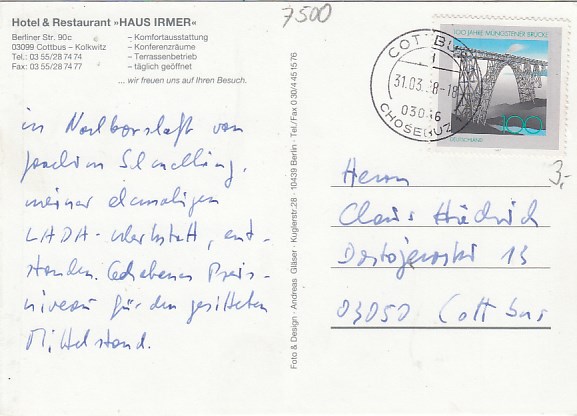 Hotel & Restaurant »HAUS IRMER«
Berliner Str. 90c – Komfortausstattung
03099 Cottbus - Kolkwitz – Konferenzräume
Tel.: 03 55/28 74 74 – Terrassenbetrieb
Fax: 03 55/28 74 77 – täglich geöffnet
... wir freuen uns auf Ihren Besuch.
7500
in Nachbarschaft von
Joachim Schnelling,
meiner ehemaligen
LADA-Werkstatt, ent-
standen. Gehobenes Preis-
niveau für den gesitteten
Mittelstand.
Foto & Design · Andreas Gläser · Kuglerstr.28 · 10439 Berlin · Tel./Fax 0 30/4 45 15 76
100 JAHRE MÜNGSTENER BRÜCKE
100
DEUTSCHLAND
COTTBUS
1
31.03.98-18
03046
CHOŚEBUZ
3,-
Herrn
Claus
Dostojewski 13
03050 Cottbus